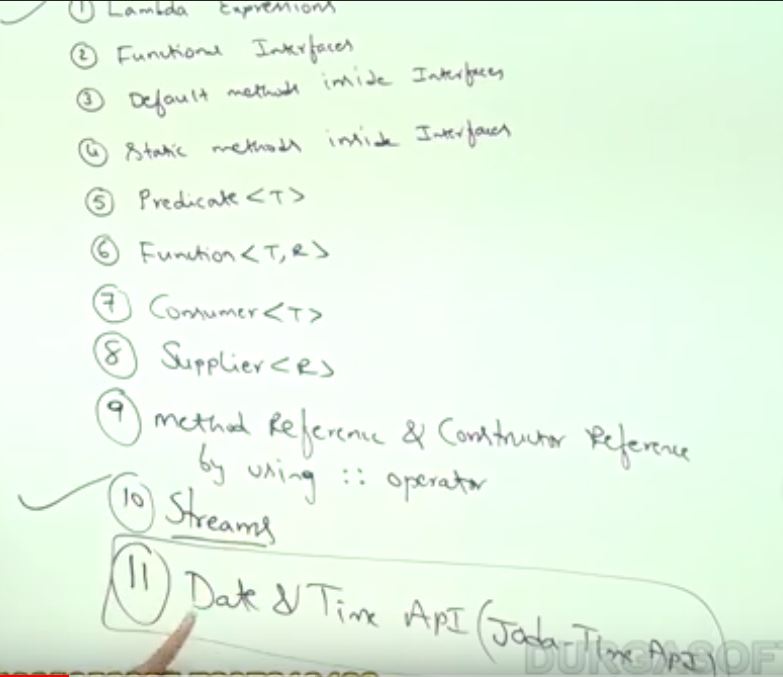 ① Lambda Expressions
② Functional Interfaces
③ Default methods inside Interfaces
④ Static methods inside Interfaces
⑤ Predicate<T>
⑥ Function<T,R>
⑦ Consumer<T>
⑧ Supplier<R>
⑨ method Reference & Constructor Reference
by using :: operator
⑩ Streams
⑪ Date & Time API (Joda-Time API)
DURGASOF